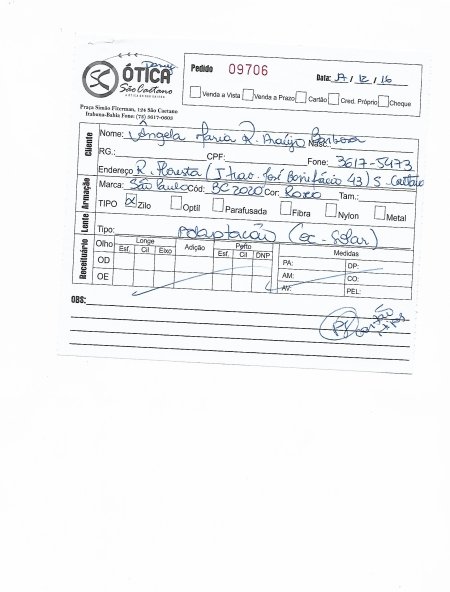 ÓTICA
São Caetano
Pedido 09706
Data: 17 / 12 / 16
Venda a Vista Venda a Prazo Cartão Cred. Próprio Cheque
Praça Simão Fiterman, 124 São Caetano
Itabuna-Bahia Fone: (73) 3617-0603
Cliente
Nome: Angela Maria R. Araújo Barbosa Nasc.
RG.: CPF: Fone: 3617-5473
Endereço R. Floresta ( José Bonifácio 43) S. Caetano
Armação
Marca: São Paulo Cód: BC2020 Cor: Roxo Tam.:
TIPO x Zilo Optil Parafusada Fibra Nylon Metal
Lente
Tipo: adaptação (oc. Solar)
Receituário
Olho Longe Adição Perto Medidas
Esf. Cil Eixo Esf. Cil DNP
OD PA: DP:
OE AM: CO:
AV: PEL:
OBS: